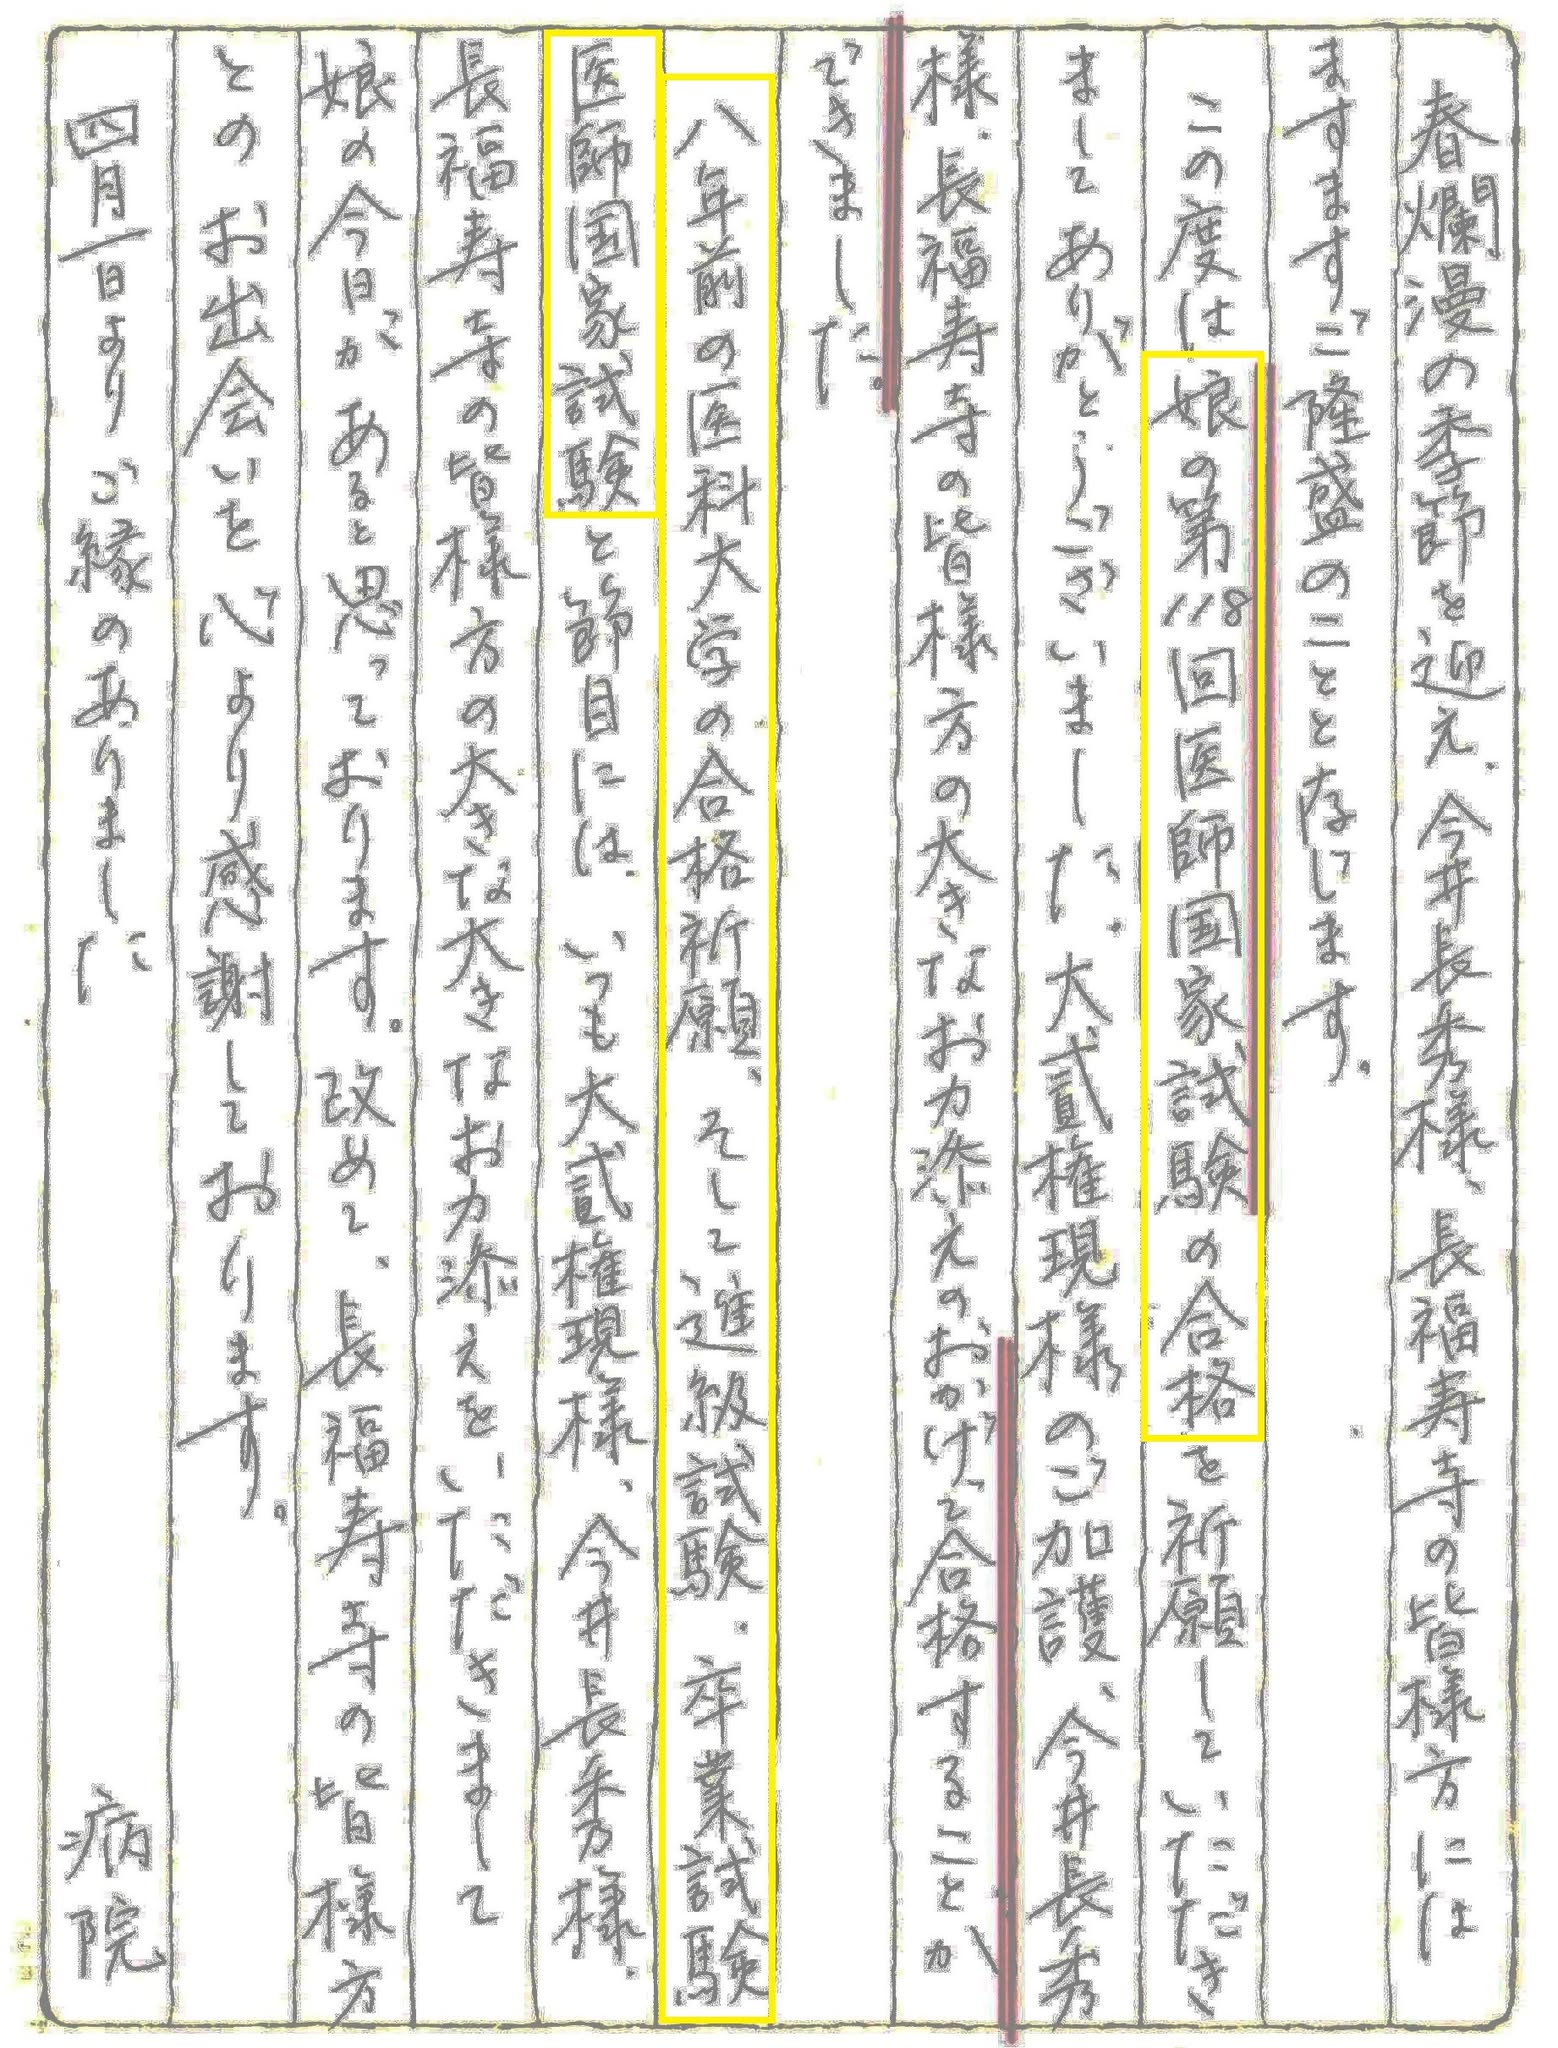 春爛漫の季節を迎え、今井長秀様、長福寿寺の皆様方には
ますますご隆盛のことと存じます。
この度は娘の第118回医師国家試験の合格を祈願していただき
ましてありがとうございました。大貳権現様のご加護、今井長秀
様、長福寿寺の皆様方の大きなお力添えのおかげで合格することが
できました。
八年前の医科大学の合格祈願、そして進級試験、卒業試験
医師国家試験と節目には、いつも大貳権現様、今井長秀様、
長福寿寺の皆様方の大きな大きなお力添えをいただきまして
娘の今日があると思っております。改めて、長福寿寺の皆様方
とのお出会いを心より感謝しております。
四月一日よりご縁のありました 病院